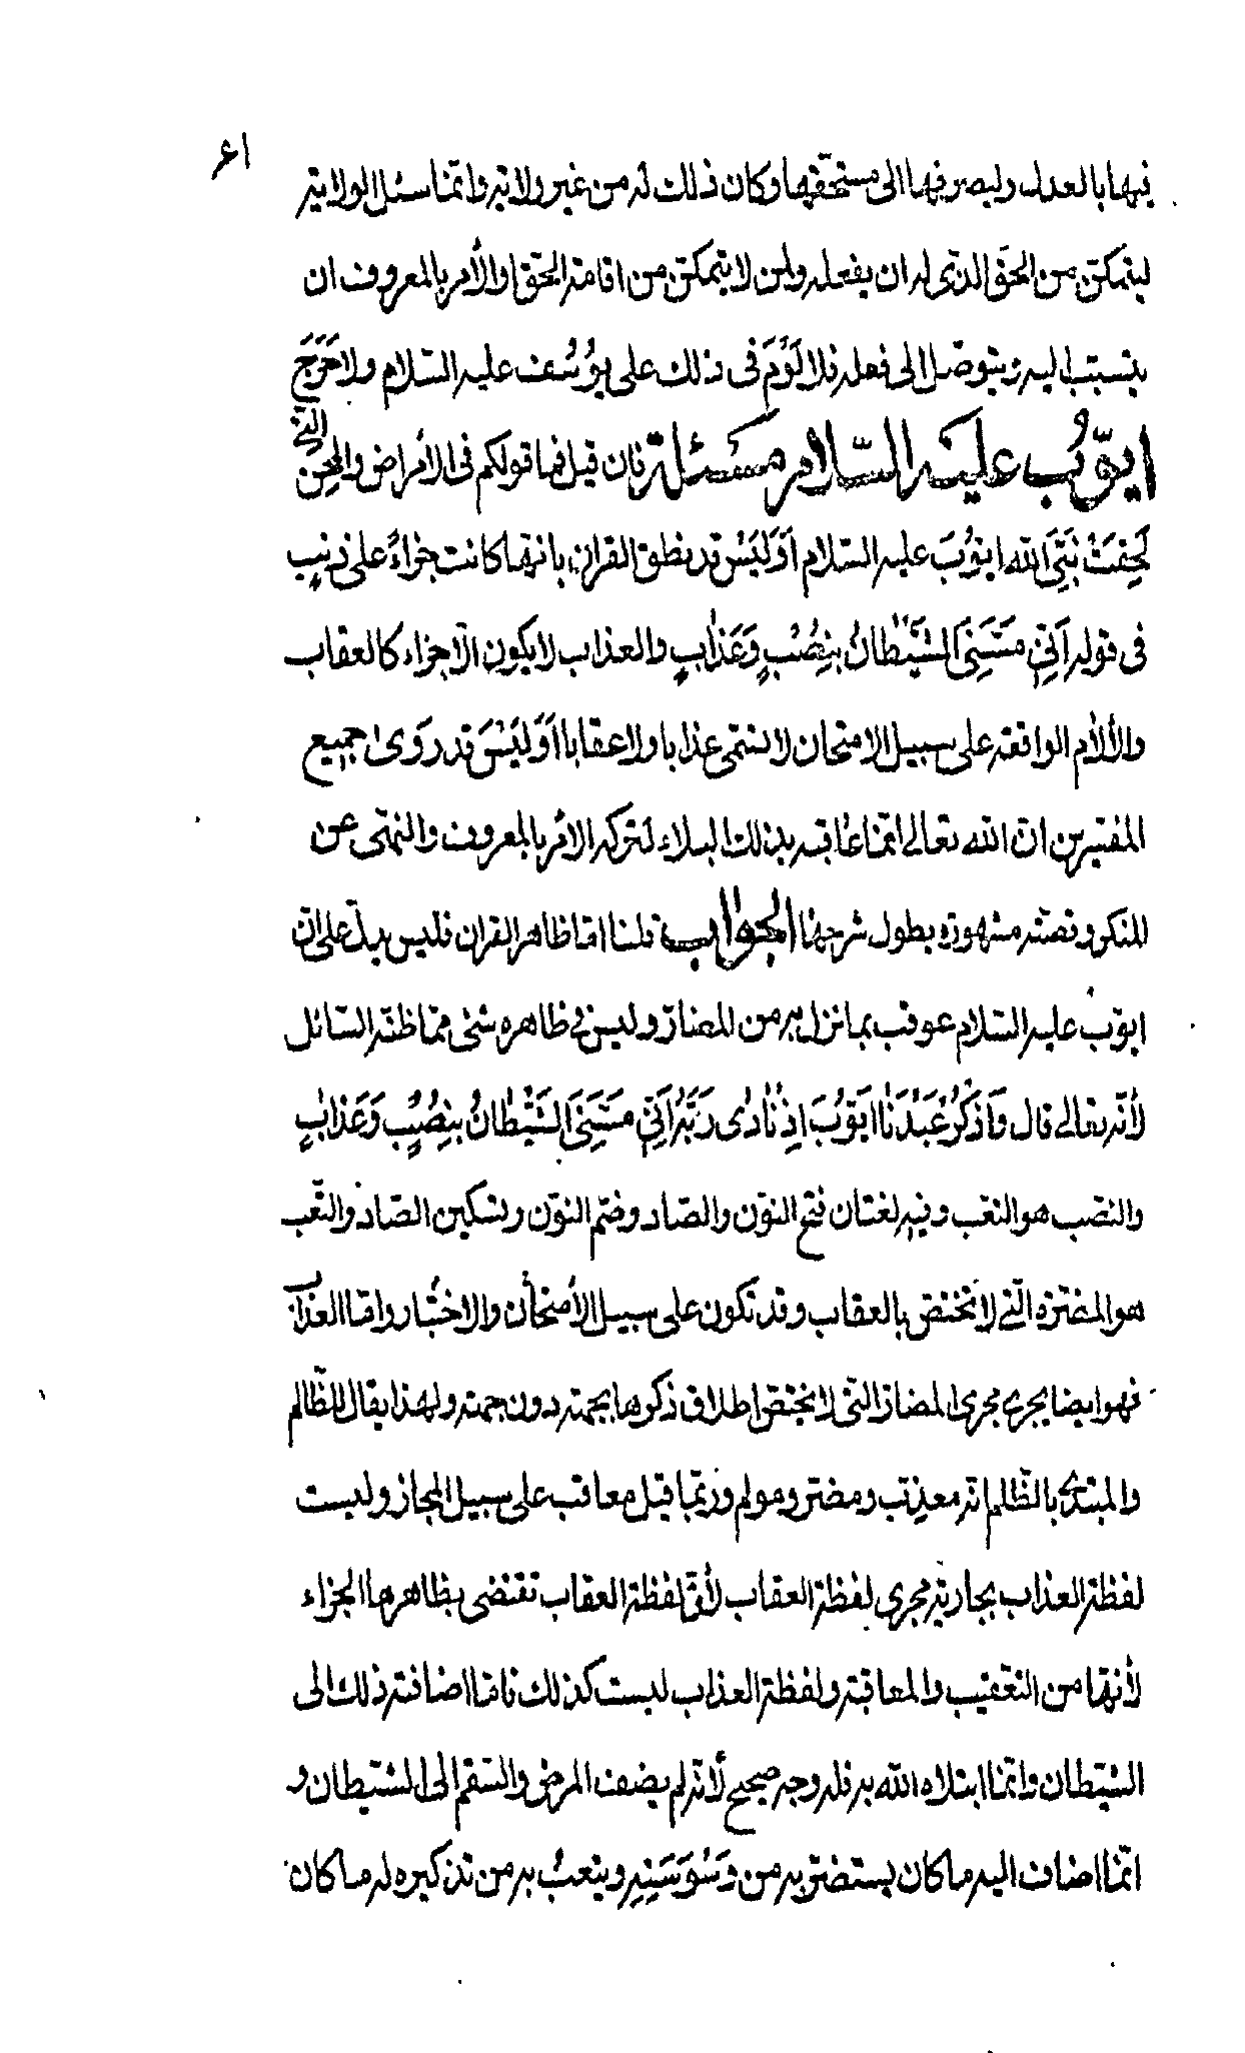 ۶۱
فيها بالعدل وليصرفها الى مستحقّها وكان ذلك له من غير ولاية وانّما سئل الولاية
ليتمكّن من الحقّ الذى له ان يفعله ولمن لا يتمكّن من اقامة الحقّ او الأمر بالمعروف ان
يتسبّب اليه ويتوصّل الى فعله فلا لَوْمَ فى ذلك على يوُسُف عليه السّلام ولا حَرَجَ
ايّوُب عليه السّلام مسئلة فان قيل فما قولكم فى الامراض والمِحَن التّي
لَحِقَتْ نَبِيَّ الله ايّوُبَ عليه السّلام اَوَلَيْسَ قد نطق القران بانّها كانت جزاءً على ذنبٍ
فى قوله اَنّي مَسَّنِىَ الشَّيْطانُ بِنُصْبٍ وَعَذابٍ والعذاب لا يكون الّا جزاء كالعقاب
والألام الواقعة على سبيل الامتحان لا تسمّى عذابا ولا عقابا اَوَلَيْسَ قد روَى جميع
المفسّرين ان الله تعالى انّما عاقبه بذلك البلاء لتركه الامر بالمعروف والنهى عن
المنكر وقصّته مشهورة يطول شرحها الجواب قلنا امّا ظاهر القران فليس يدلّ على انّ
ايوّب عليه السّلام عوقب بما نزل به من المضارّ وليس في ظاهره شئ ممّا ظنّه السّائل
لأنّه تعالى قال وَاذْكُرْ عَبْدَنٰا ايَّوُبَ اِذْ نٰادٰى رَبَّهُ اَنّي مَسَّنِىَ الشَّيْطانُ بِنُصْبٍ وَعَذابٍ
والنصب هو التعب وفيه لغتان فتح النوّن والصّاد وضمّ النوّن وتسكين الصّاد والتّعب
هو المضرّة الّتي لا تختصّ بالعقاب وقد تكون على سبيل الأمتحان والاختبار وامّا العذاب
فهو ايضا يجرى مجرى المضارّ التّي لا تختصّ اطلاق ذكرها بجهة دون جهة ولهذا يقال للظّالم
والمبتدئ بالظّلم انّه معذّب ومضرّ ومولم وربّما قيل معاقب على سبيل المجاز وليست
لفظة العذاب بجارية مجرى لفظة العقاب لأنّ لفظة العقاب تقتضى بظاهرها الجزاء
لأنّها من التعّقيب والمعاقبة ولفظة العذاب ليست كذلك فامّا اضافته ذلك الى
الشيّطان وانّما ابتلاه الله به فله وجه صحيح لأنّه لم يضف المرض والسّقم الى الشّيطان و
انّما اضاف اليه ما كان يستضرّ به من وَسْوَسَتِهِ ويتعب به من تذكيره له ما كان